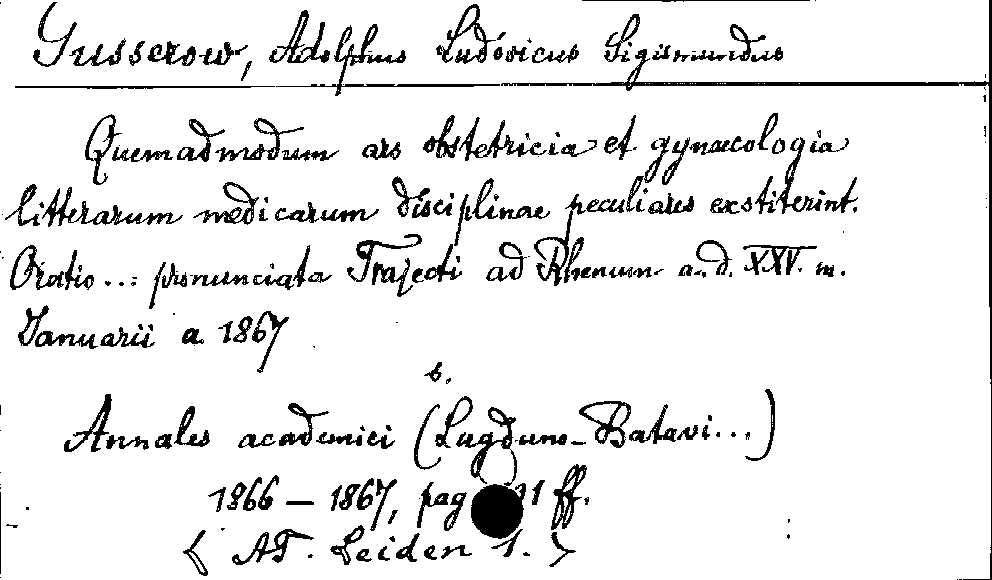 Gusserow, Adolphus Ludovicus Sigismundus
Quemadmodum ars obstetricia et gynaecologia
litterarum medicarum disciplinae peculiares exstiterint.
Oratio...: pronunciata Trajecti ad Rhenum a. d. XXV. m.
Januarii a. 1867
s.
Annales academici (Lugduno-Batavi...)
1866 – 1867, pag 1 ff.
< AT. Leiden 1. >